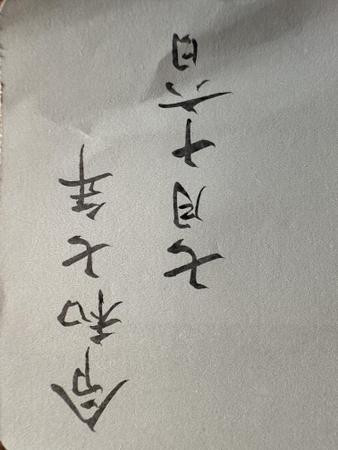 令和七年
七月十六日